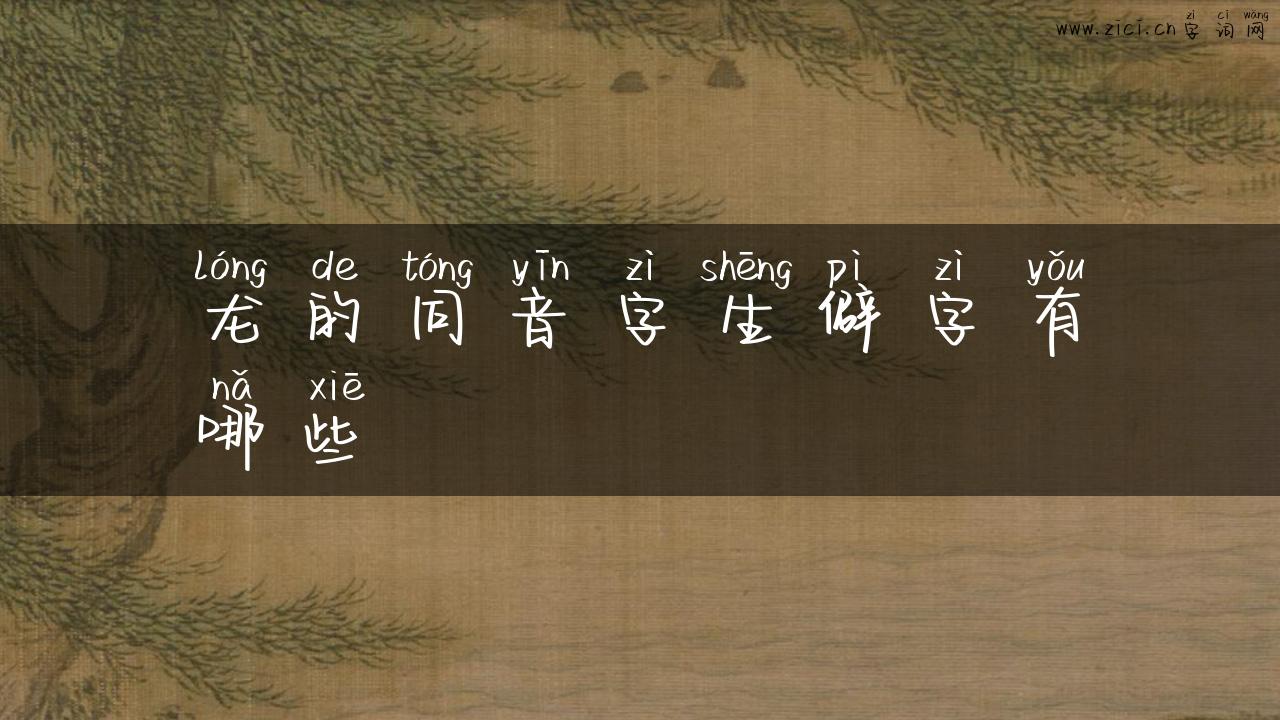 zì cí wǎng
www.zici.cn 字词网
lóng de tóng yīn zì shēng pì zì yǒu
龙的同音字生僻字有
nǎ xiē
哪些